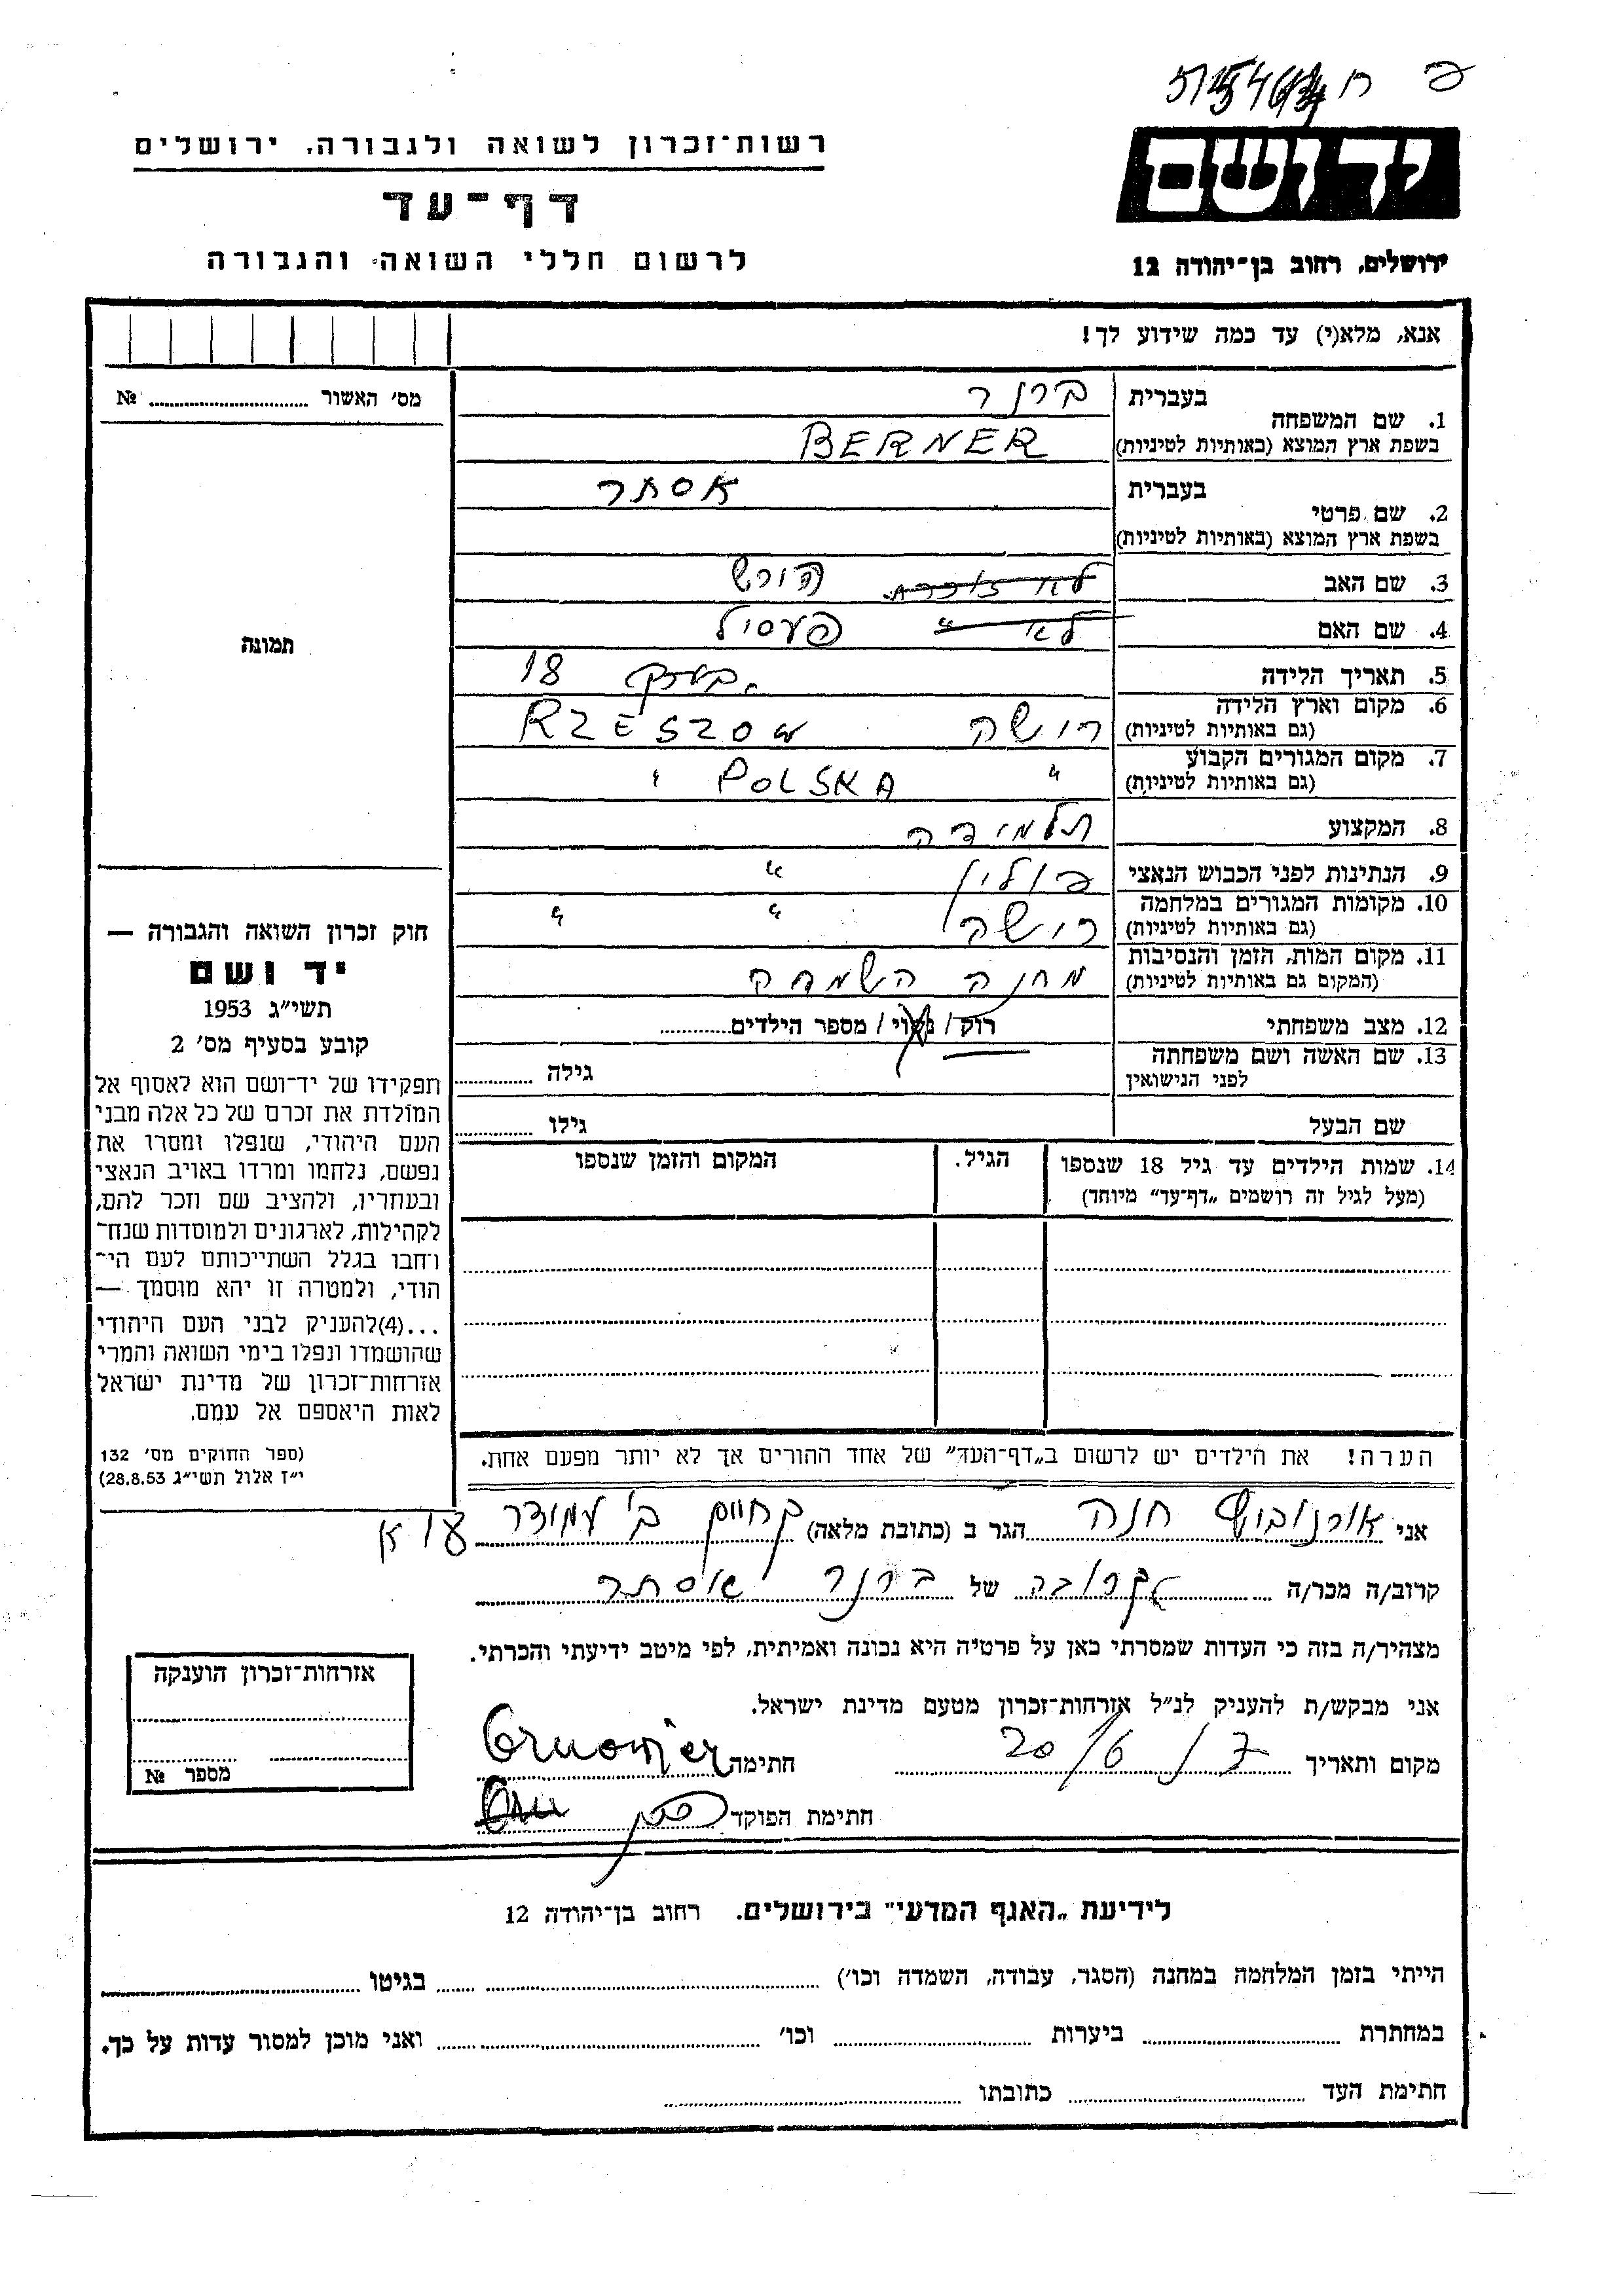 פ ח
רשות־זכרון לשואה ולגבורה, ירושלים
יד ושם
דף־עד
לרשום חללי השואה והגבורה
ירושלים, רחוב בן־יהודה 12
אנא, מלא(י) עד כמה שידוע לך!
מס׳ האשור № 
1. שם המשפחה
בעברית ברנר
בשפת ארץ המוצא (באותיות לטיניות) BERNER
2. שם פרטי
בעברית אסתר
בשפת ארץ המוצא (באותיות לטיניות)
3. שם האב לא זוכרת הירש
4. שם האם לא " פעסיל
תמונה
5. תאריך הלידה בערך 18
6. מקום וארץ הלידה
(גם באותיות לטיניות) רישה RZESZOW
7. מקום המגורים הקבוע
(גם באותיות לטיניות) " POLSKA "
8. המקצוע תלמידה
9. הנתינות לפני הכבוש הנאצי פולין "
10. מקומות המגורים במלחמה
(גם באותיות לטיניות) רישה " "
11. מקום המות, הזמן והנסיבות
(המקום גם באותיות לטיניות) מחנה השמדה
12. מצב משפחתי רווק / נשוי / מספר הילדים
13. שם האשה ושם משפחתה
לפני הנישואין גילה
שם הבעל גילו
14. שמות הילדים עד גיל 18 שנספו
(מעל לגיל זה רושמים „דף־עד״ מיוחד)
הגיל.
המקום והזמן שנספו
חוק זכרון השואה והגבורה —
יד ושם
תשי״ג 1953
קובע בסעיף מס׳ 2
תפקידו של יד־ושם הוא לאסוף אל
המולדת את זכרם של כל אלה מבני
העם היהודי, שנפלו ומסרו את
נפשם, נלחמו ומרדו באויב הנאצי
ובעוזריו, ולהציב שם וזכר להם,
לקהילות, לארגונים ולמוסדות שנח־
רבו בגלל השתייכותם לעם הי־
הודי, ולמטרה זו יהא מוסמך —
...(4)להעניק לבני העם היהודי
שהושמדו ונפלו בימי השואה והמרי
אזרחות־זכרון של מדינת ישראל
לאות היאספם אל עמם.
(ספר החוקים מס׳ 132
י״ז אלול תשי״ג 28.8.53)
הערה! את הילדים יש לרשום ב„דף־העד״ של אחד ההורים אך לא יותר מפעם אחת.
אני חנה הגר ב (כתובת מלאה) ב׳
קרוב/ה מכר/ה קרובה של ברנר אסתר
מצהיר/ה בזה כי העדות שמסרתי כאן על פרטיה היא נכונה ואמיתית, לפי מיטב ידיעתי והכרתי.
אני מבקש/ת להעניק לנ״ל אזרחות־זכרון מטעם מדינת ישראל.
מקום ותאריך 20/6 חתימה
חתימת הפוקד
אזרחות־זכרון הוענקה
מספר №
לידיעת „האגף המדעי״ בירושלים. רחוב בן־יהודה 12
הייתי בזמן המלחמה במחנה (הסגר, עבודה, השמדה וכו׳) בגיטו
במחתרת ביערות וכו׳ ואני מוכן למסור עדות על כך.
חתימת העד כתובתו